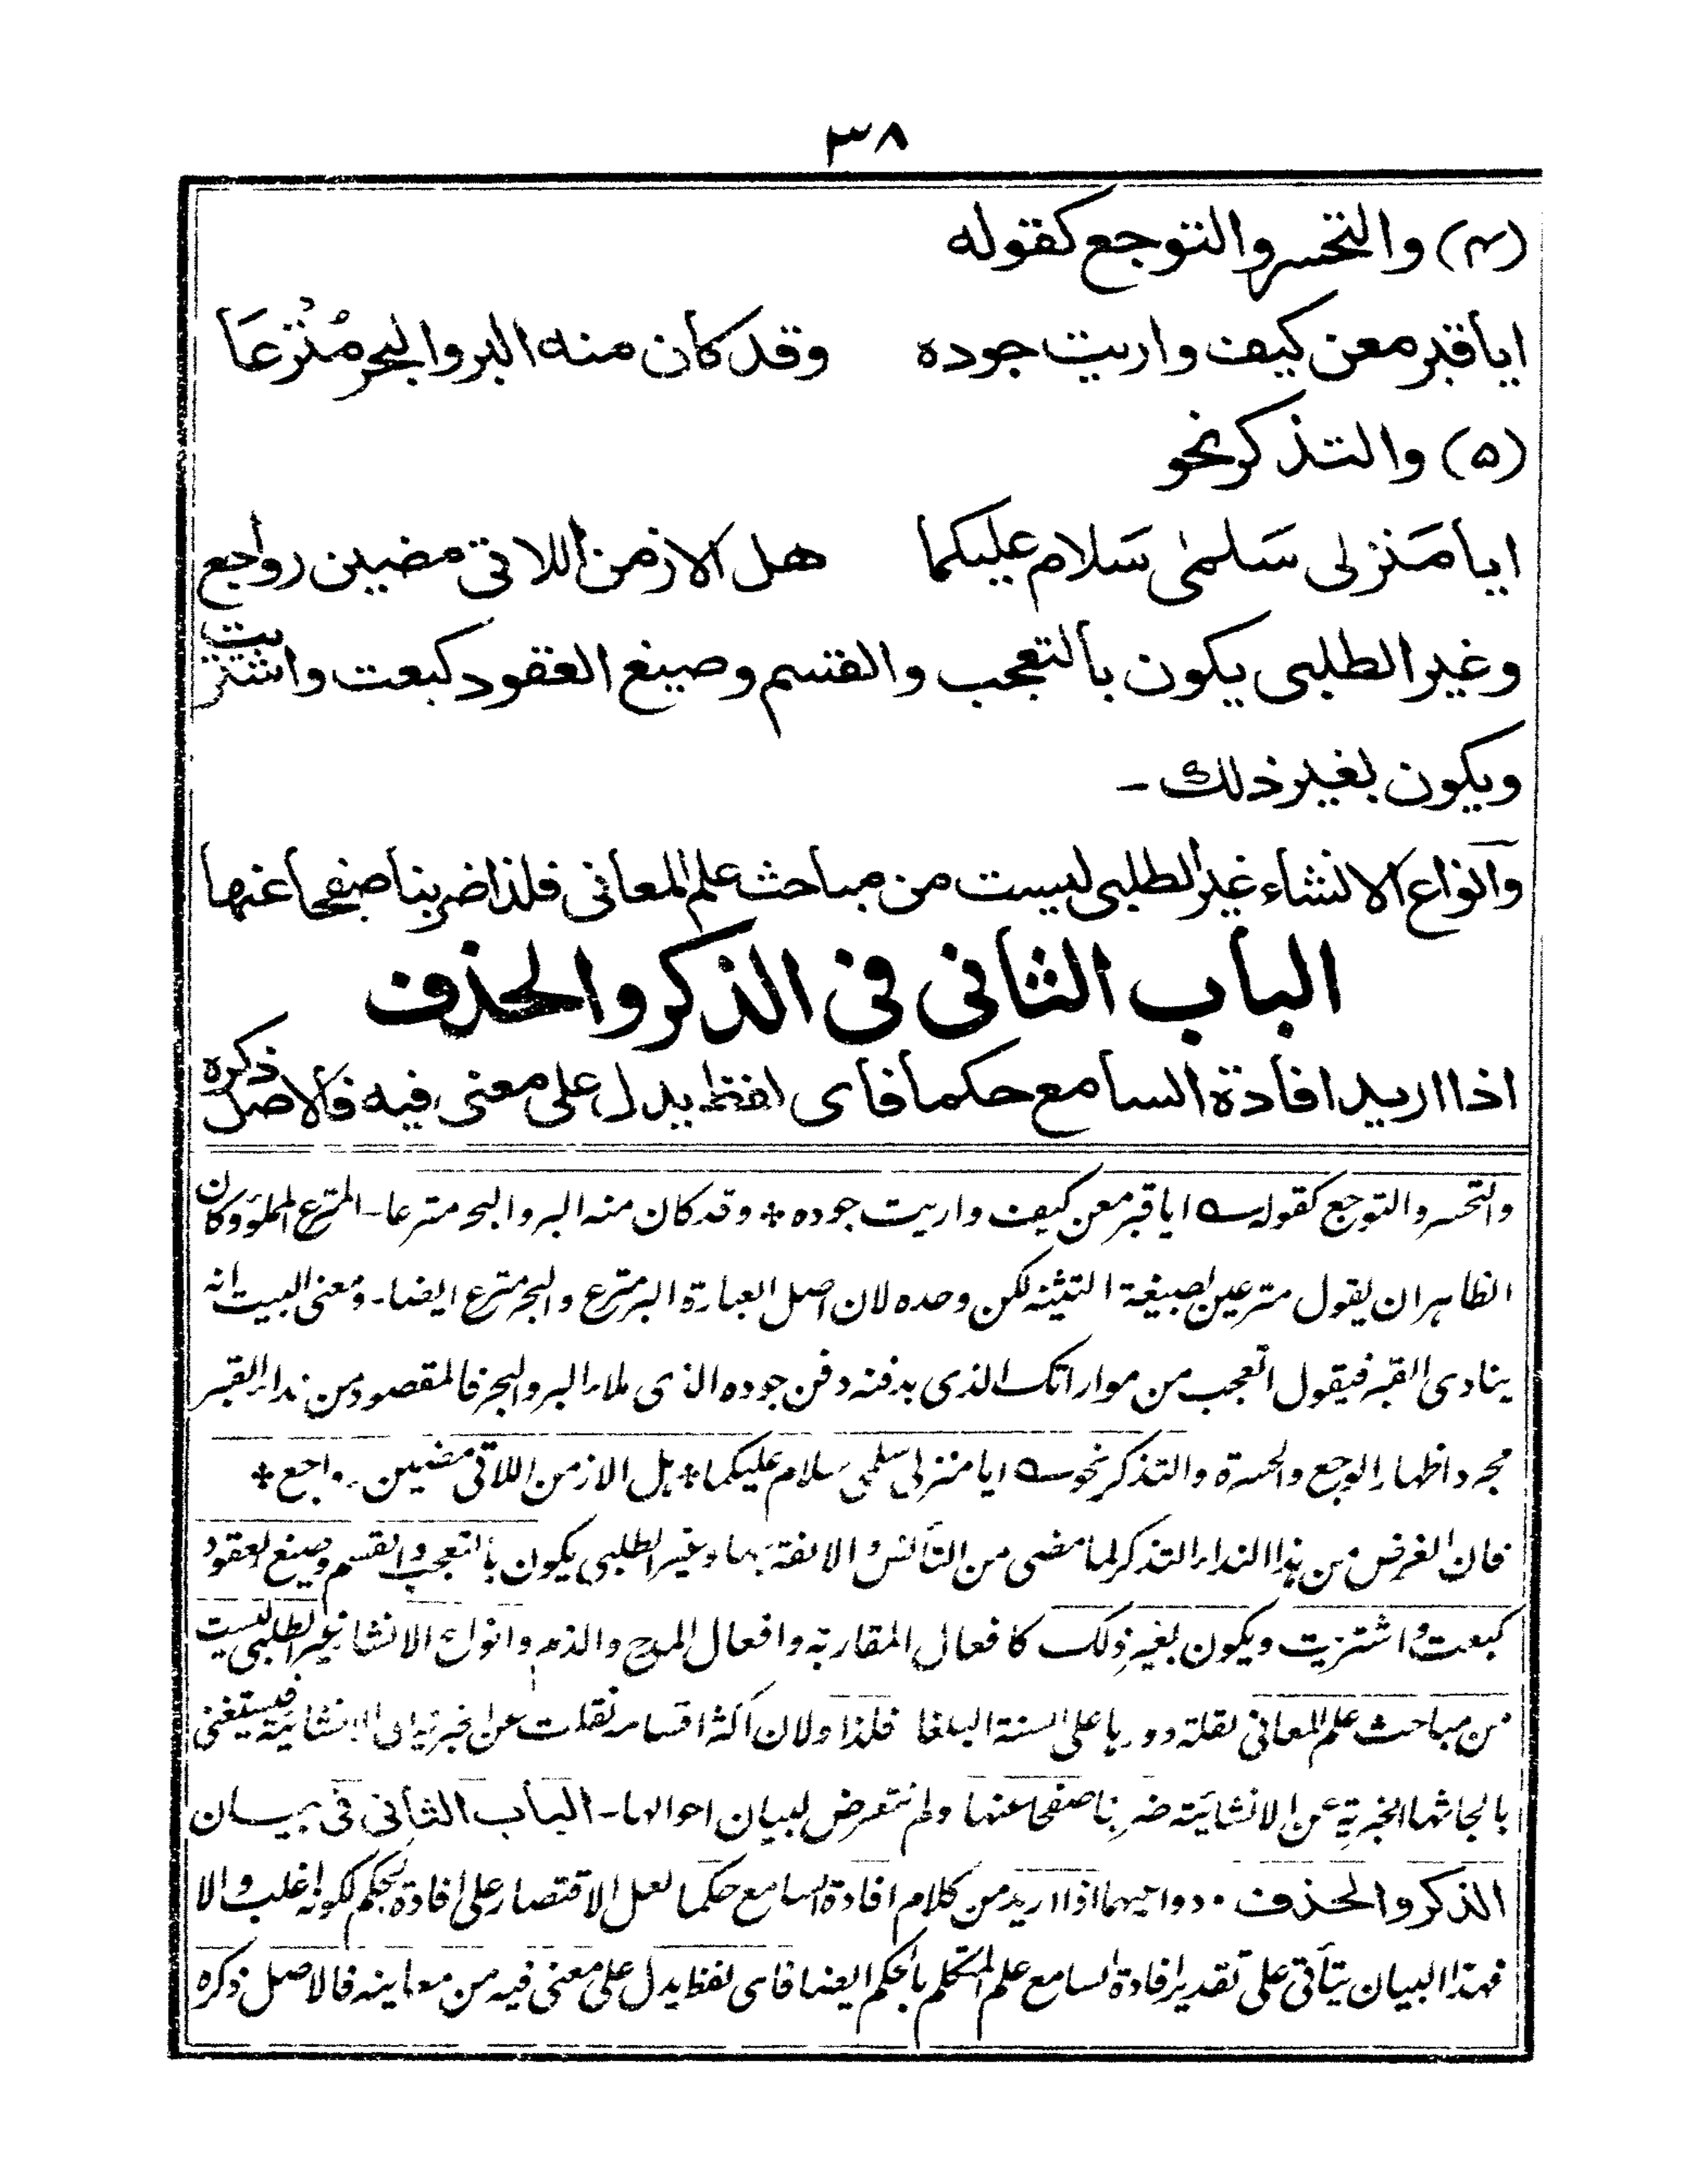 ٣٨
(٤) والتحسر والتوجع كقوله
ايا قبر معن كيف واريت جوده وقد كان منه البر والبحر مُتْرَعَا
(٥) والتذكر نحو
ايا مَنزلى سَلمىٰ سَلام عليكما هل الازمن اللاتى مضين رواجع
وغير الطلبى يكون بالتعجب والقسم وصيغ العقود كبعت واشتريت
ويكون بغير ذلك -
وانواع الانشاء غير الطلبى ليست من مباحث علم المعانى فلذا ضربنا صفحا عنها
الباب الثانى فى الذكر والحذف
اذا اريد افادة السامع حكما فاى لفظ يدل على معنى فيه فالاصل ذكره
والتحسر والتوجع كقوله ؎ ايا قبر معن كيف واريت جوده + وقد كان منه البر والبحر مترعا - المترع المملوء وكان
الظاهر ان يقول مترعين بصيغة التثنية لكن وحده لان اصل العبارة البر مترع والبحر مترع ايضا - ومعنى البيت انه
ينادى القبر فيقول اتعجب من مواراتك الذى بدفنه دفن جوده الذى ملاء البر والبحر فالمقصود من نداء القبر
مجرد اظهار الوجع والحسرة والتذكر نحو ؎ ايا منزلى سلمى سلام عليكما + هل الازمن اللاتى مضين رواجع +
فان الغرض من هذا النداء التذكر لما مضى من التأنس والالفة بهما وغير الطلبى يكون بالتعجب والقسم وصيغ العقود
كبعت واشتريت ويكون بغير ذلك كافعال المقاربة وافعال المدح والذم وانواع الانشاء غير الطلبى ليست
من مباحث علم المعانى لقلة دورها على السنة البلغا فلذا ولان اكثر اقسامه نقلت عن الخبرية الى الانشائية فيستغنى
بابحاثها الخبرية عن الانشائية ضربنا صفحا عنها ولم نتعرض لبيان احوالها - الباب الثانى فى بيان
الذكر والحذف . دواعيهما اذا اريد من كلام افادة السامع حكما لعل الاقتصار على افادة الحكم لكونه اغلب والا
فهذا البيان يتأتى على تقدير افادة السامع علم المتكلم بالحكم ايضا فاى لفظ يدل على معنى فيه من معانيه فالاصل ذكره